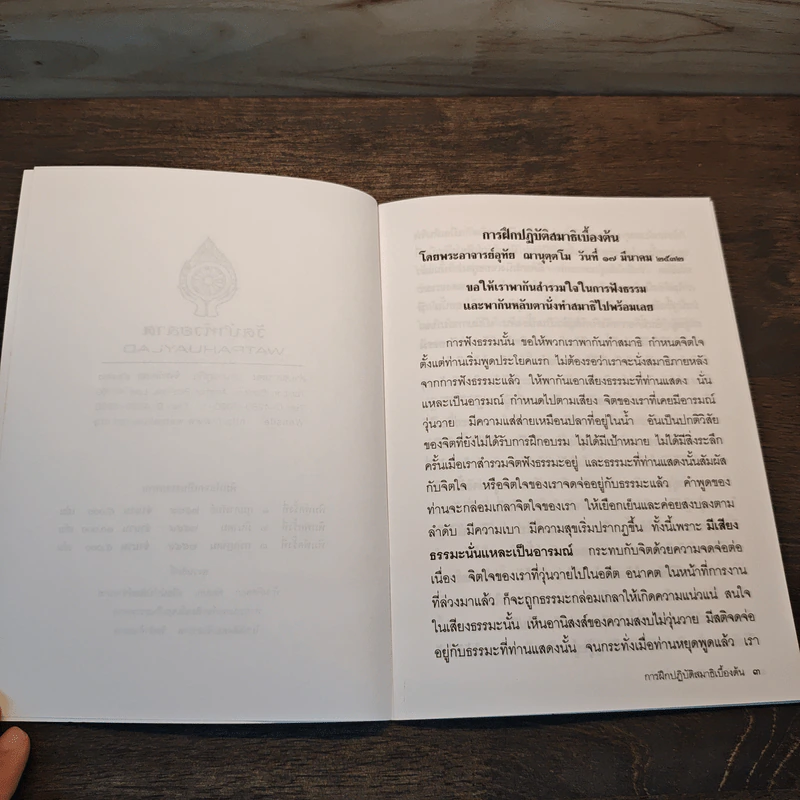 การฝึกปฏิบัติสมาธิเบื้องต้น
โดยพระอาจารย์อุทัย ฌานุตฺตโม วันที่ ๑๗ มีนาคม ๒๕๓๒
ขอให้เราพากันสำรวมใจในการฟังธรรม
และพากันหลับตานั่งทำสมาธิไปพร้อมเลย
การฟังธรรมนั้น ขอให้พวกเราพากันทำสมาธิ กำหนดจิตใจ
ตั้งแต่ท่านเริ่มพูดประโยคแรก ไม่ต้องรอว่าเราจะนั่งสมาธิภายหลัง
จากการฟังธรรมะแล้ว ให้พากันเอาเสียงธรรมะที่ท่านแสดง นั่น
แหละเป็นอารมณ์ กำหนดไปตามเสียง จิตของเราที่เคยมีอารมณ์
วุ่นวาย มีความแส่ส่ายเหมือนปลาที่อยู่ในน้ำ อันเป็นปกติวิสัย
ของจิตที่ยังไม่ได้รับการฝึกอบรม ไม่ได้มีเป้าหมาย ไม่ได้มีสิ่งระลึก
ครั้นเมื่อเราสำรวมจิตฟังธรรมะอยู่ และธรรมะที่ท่านแสดงนั้นสัมผัส
กับจิตใจ หรือจิตใจของเราจดจ่ออยู่กับธรรมะแล้ว คำพูดของ
ท่านจะกล่อมเกลาจิตใจของเรา ให้เยือกเย็นและค่อยสงบลงตาม
ลำดับ มีความเบา มีความสุขเริ่มปรากฏขึ้น ทั้งนี้เพราะ มีเสียง
ธรรมะนั่นแหละเป็นอารมณ์ กระทบกับจิตด้วยความจดจ่อต่อ
เนื่อง จิตใจของเราที่วุ่นวายไปในอดีต อนาคต ในหน้าที่การงาน
ที่ล่วงมาแล้ว ก็จะถูกธรรมะกล่อมเกลาให้เกิดความแน่วแน่ สนใจ
ในเสียงธรรมะนั้น เห็นอานิสงส์ของความสงบไม่วุ่นวาย มีสติจดจ่อ
อยู่กับธรรมะที่ท่านแสดงนั้น จนกระทั่งเมื่อท่านหยุดพูดแล้ว เรา
การฝึกปฏิบัติสมาธิเบื้องต้น ๓